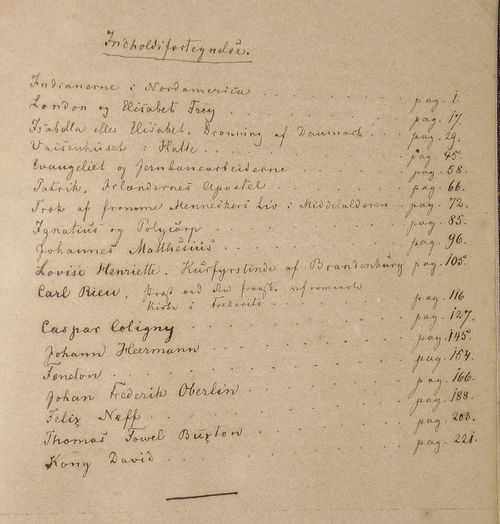 Indholdsfortegnelse.
Indianerne i Nordamerica . . . pag. 1.
London og Elisabet Frey . . . pag. 17.
Isabella eller Elisabet, Dronning af Danmark . . . pag. 29.
Vaisenhuset i Halle . . . pag. 45.
Evangeliet og Jernbanearbeiderne . . . pag. 58.
Patrik, Irlændernes Apostel . . . pag. 66.
Træk af fromme Menneskers Liv i Middelalderen . . . pag. 72.
Ignatius og Polycarp . . . pag. 85.
Johannes Matthesius . . . pag. 96.
Lovise Henriette, Kurfyrstinde af Brandenburg pag. 105.
Carl Rieu, Præst ved den fransk reformerte
Kirke i Frederits . . . pag. 116
Caspar Coligny . . . pag. 127.
Johann Heermann . . . pag. 145.
Fenelon . . . pag. 154.
Johan Frederik Oberlin . . . pag. 166.
Felix Neff . . . pag. 188.
Thomas Fowel Buxton . . . pag. 203.
Kong David . . . pag. 221.